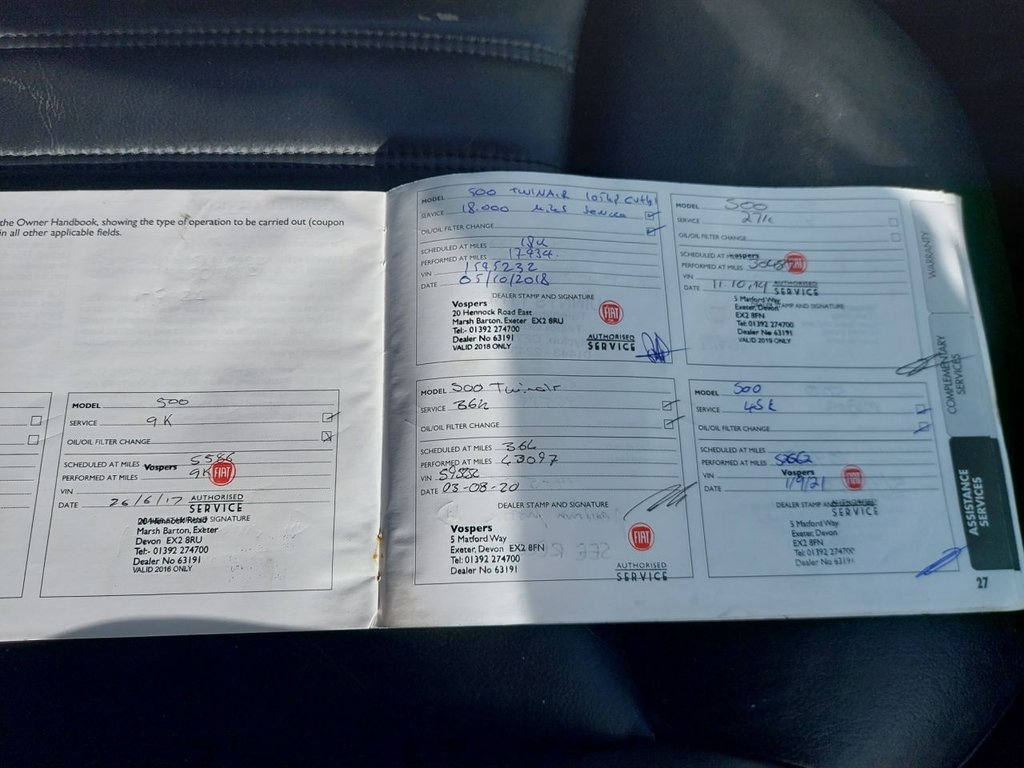 the Owner Handbook, showing the type of operation to be carried out (coupon
in all other applicable fields.
MODEL 500
SERVICE 9K
OIL/OIL FILTER CHANGE
SCHEDULED AT MILES 5586
PERFORMED AT MILES 9K
Vospers
FIAT
VIN
DATE 26/6/17
AUTHORISED
SERVICE
20 Hennock Road
SIGNATURE
Marsh Barton, Exeter
Devon EX2 8RU
Tel:- 01392 274700
Dealer No 63191
VALID 2016 ONLY
MODEL 500 TWINAIR
SERVICE 18.000 miles Service
OIL/OIL FILTER CHANGE
SCHEDULED AT MILES 18K
PERFORMED AT MILES 17934.
VIN 1595232
DATE 05/10/2018
DEALER STAMP AND SIGNATURE
Vospers
20 Hennock Road East
Marsh Barton, Exeter EX2 8RU
Tel:- 01392 274700
Dealer No 63191
VALID 2018 ONLY
FIAT
AUTHORISED
SERVICE
MODEL 500
SERVICE 27K
OIL/OIL FILTER CHANGE
SCHEDULED AT MILES
Vospers
PERFORMED AT MILES
FIAT
VIN
DATE 11.10.19
AUTHORISED
SERVICE
5 Matford Way
STAMP AND SIGNATURE
Exeter, Devon
EX2 8FN
Tel: 01392 274700
Dealer No 63191
VALID 2019 ONLY
MODEL 500 Twinair
SERVICE 36K
OIL/OIL FILTER CHANGE
SCHEDULED AT MILES 36K
PERFORMED AT MILES 43097
VIN
DATE 03-08-20
DEALER STAMP AND SIGNATURE
Vospers
5 Matford Way
Exeter, Devon EX2 8FN
Tel: 01392 274700
Dealer No 63191
FIAT
AUTHORISED
SERVICE
MODEL 500
SERVICE 45K
OIL/OIL FILTER CHANGE
SCHEDULED AT MILES
PERFORMED AT MILES
VIN
Vospers
DATE 1/9/21
FIAT
AUTHORISED
SERVICE
DEALER STAMP AND SIGNATURE
5 Matford Way
Exeter, Devon
EX2 8FN
Tel: 01392 274700
Dealer No 63191
WARRANTY
COMPLEMENTARY
SERVICES
ASSISTANCE
SERVICES
27